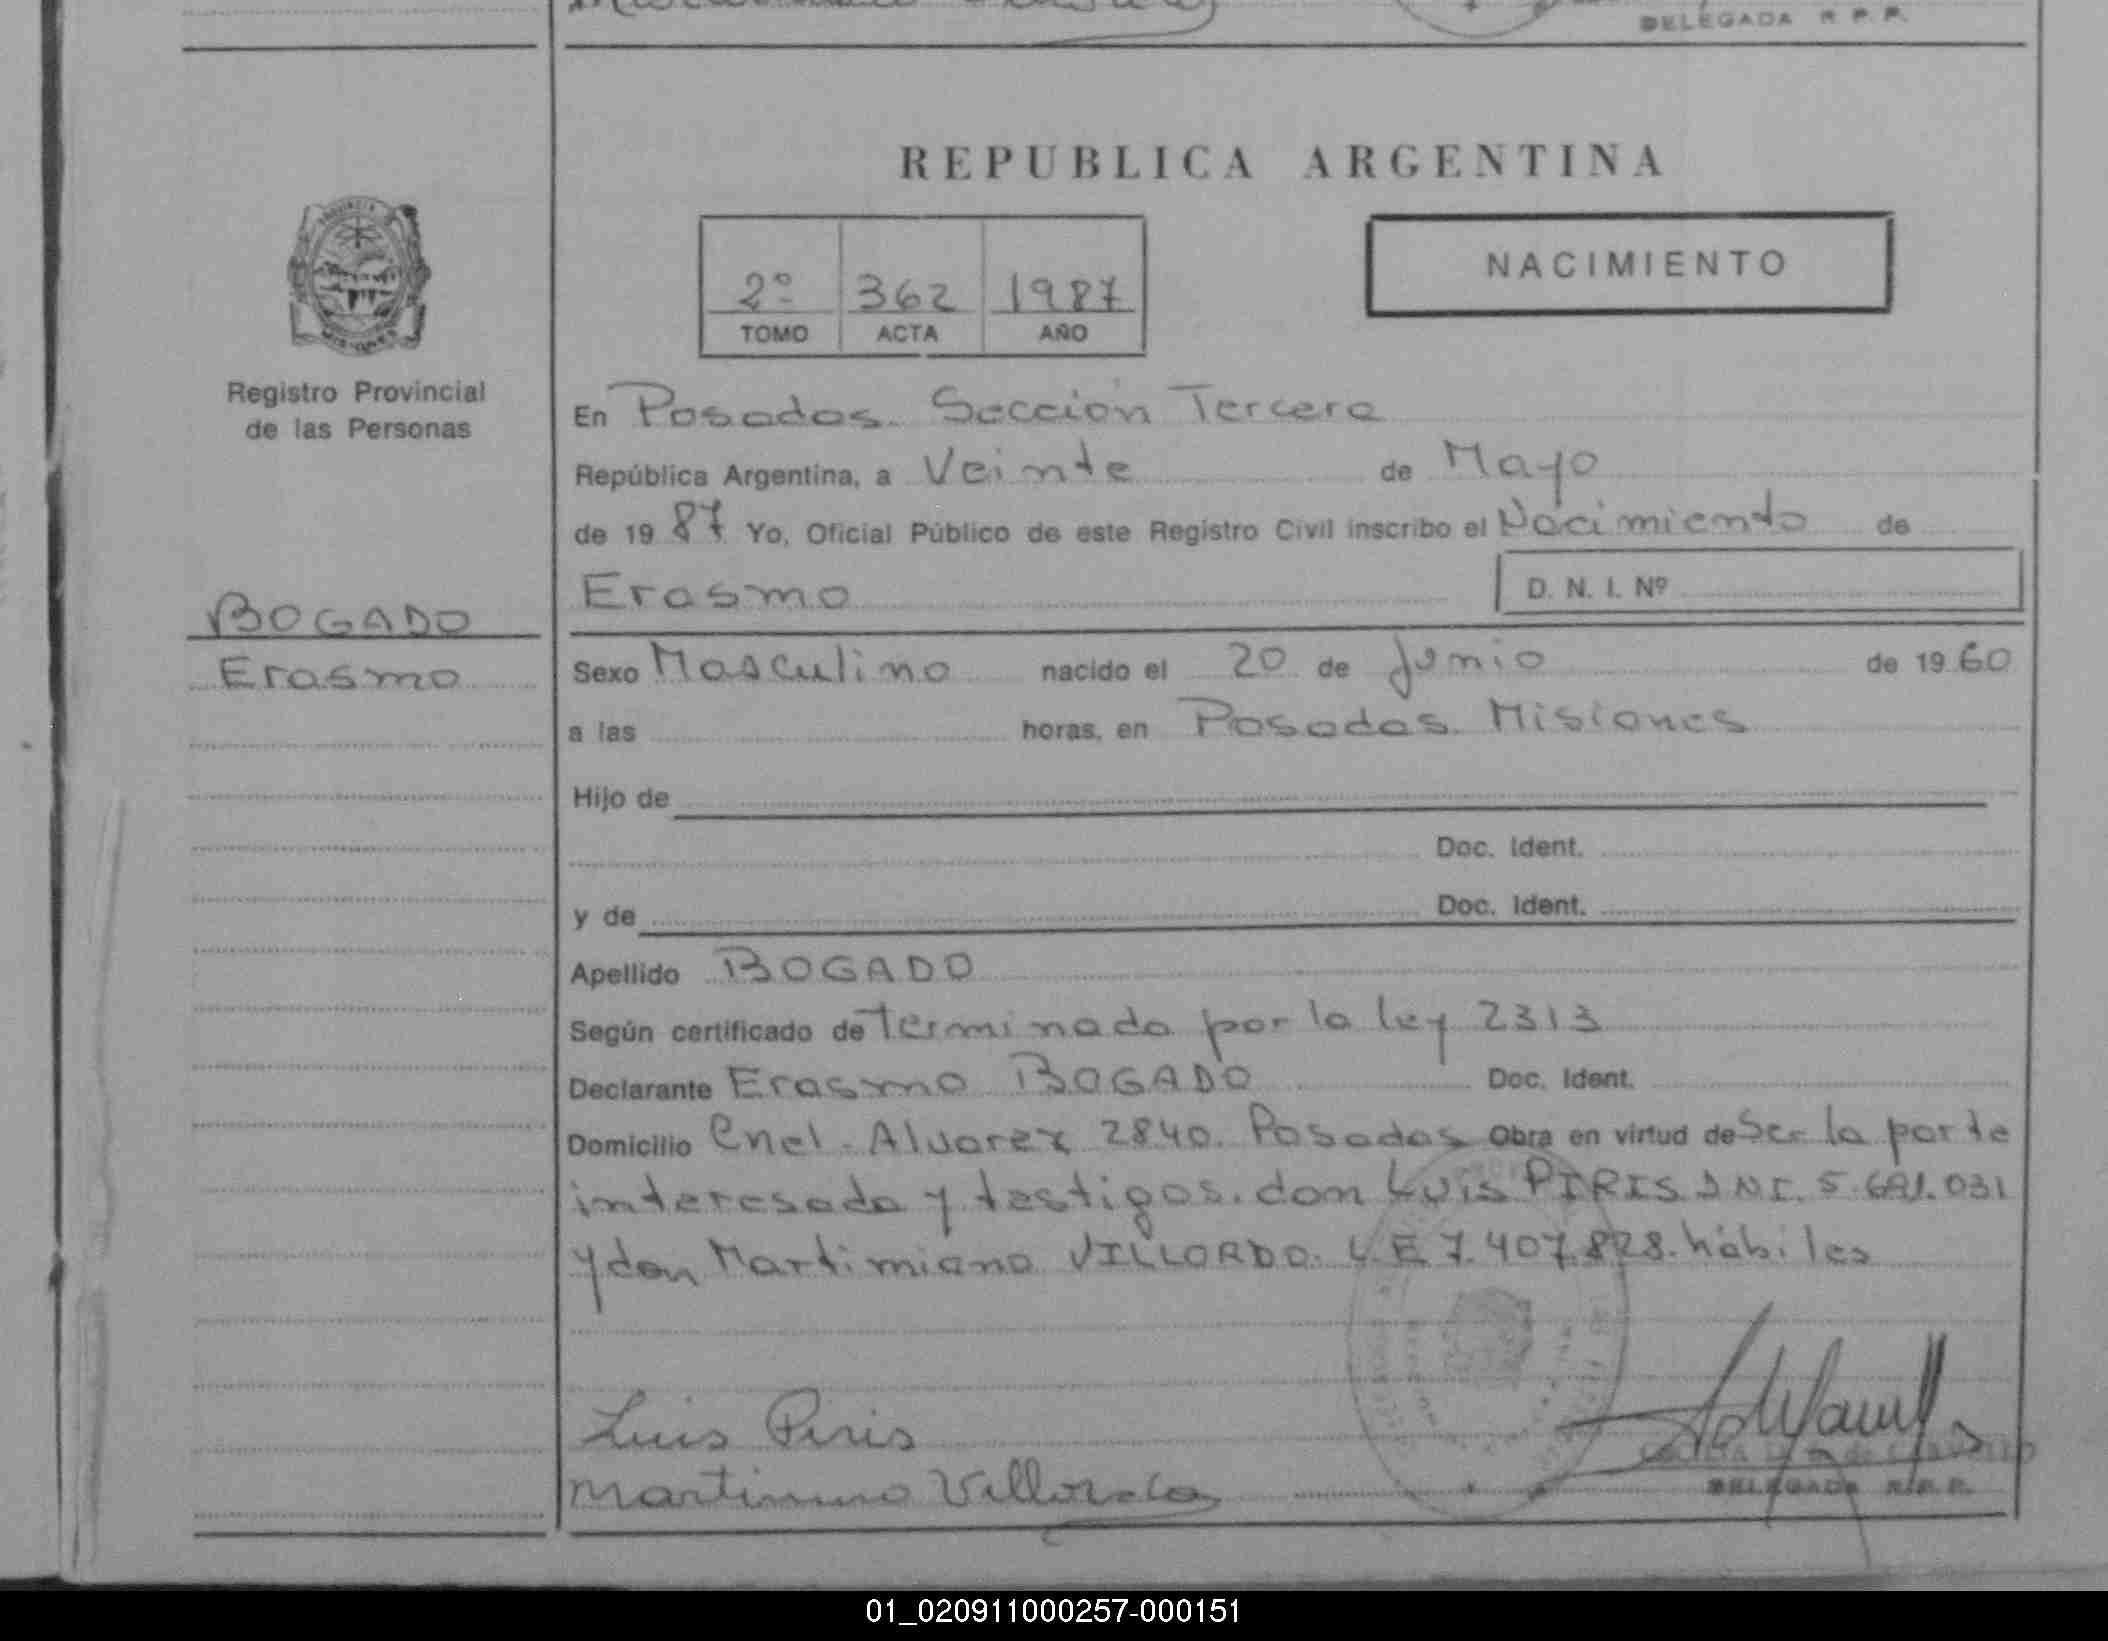 DELEGADA R. P. P.
REPUBLICA ARGENTINA
PROVINCIA
MISIONES
Registro Provincial
de las Personas
2º 362 1987
TOMO ACTA AÑO
NACIMIENTO
En Posadas. Sección Tercera
República Argentina, a Veinte de Mayo
de 19 87 Yo, Oficial Público de este Registro Civil inscribo el Nacimiento de
Erasmo D. N. I. Nº
BOGADO
Erasmo
Sexo Masculino nacido el 20 de Junio de 19 60
a las horas, en Posadas. Misiones
Hijo de
Doc. Ident.
y de Doc. Ident.
Apellido BOGADO
Según certificado de Terminado por la ley 2313
Declarante Erasmo BOGADO Doc. Ident.
Domicilio Cnel. Alvarez 2840. Posadas Obra en virtud de Ser la parte
interesada y testigos. don Luis PIRIS D N I. 5.691.031
y don Martimiano VILLORDO. L.E 7.407.828. hábiles
Luis Piris
Martimiano Villordo
DELEGADA R. P. P.
01_020911000257-000151